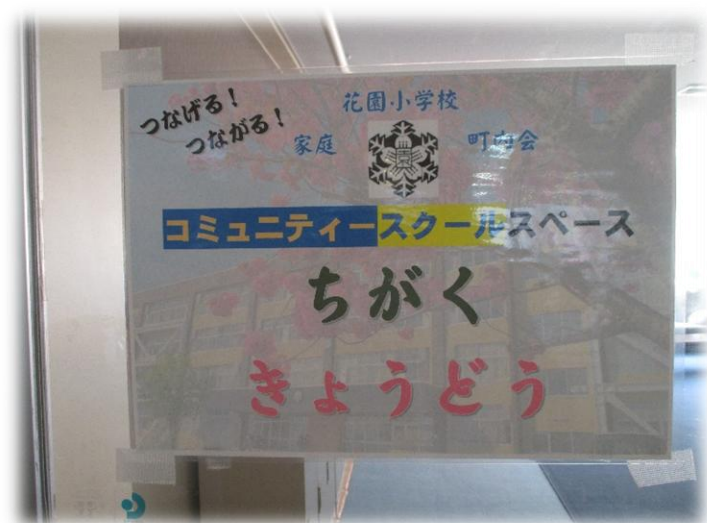 つなげる！
つながる！
花園小学校
家庭
町連会
コミュニティースクールスペース
ちがく
きょうどう